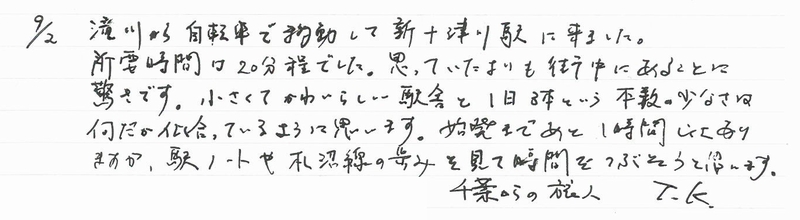 9/2 滝川から自転車で移動して新十津川駅に来ました。
所要時間は20分程でした。思っていたよりも街中にあることに
驚きです。小さくてかわいらしい駅舎と1日3本という本数の少なさは
何だか似合っているように思います。始発まであと1時間以上あり
ますが、駅ノートや札沼線の歩みを見て時間をつぶそうと思います。
千葉からの旅人 T.K.